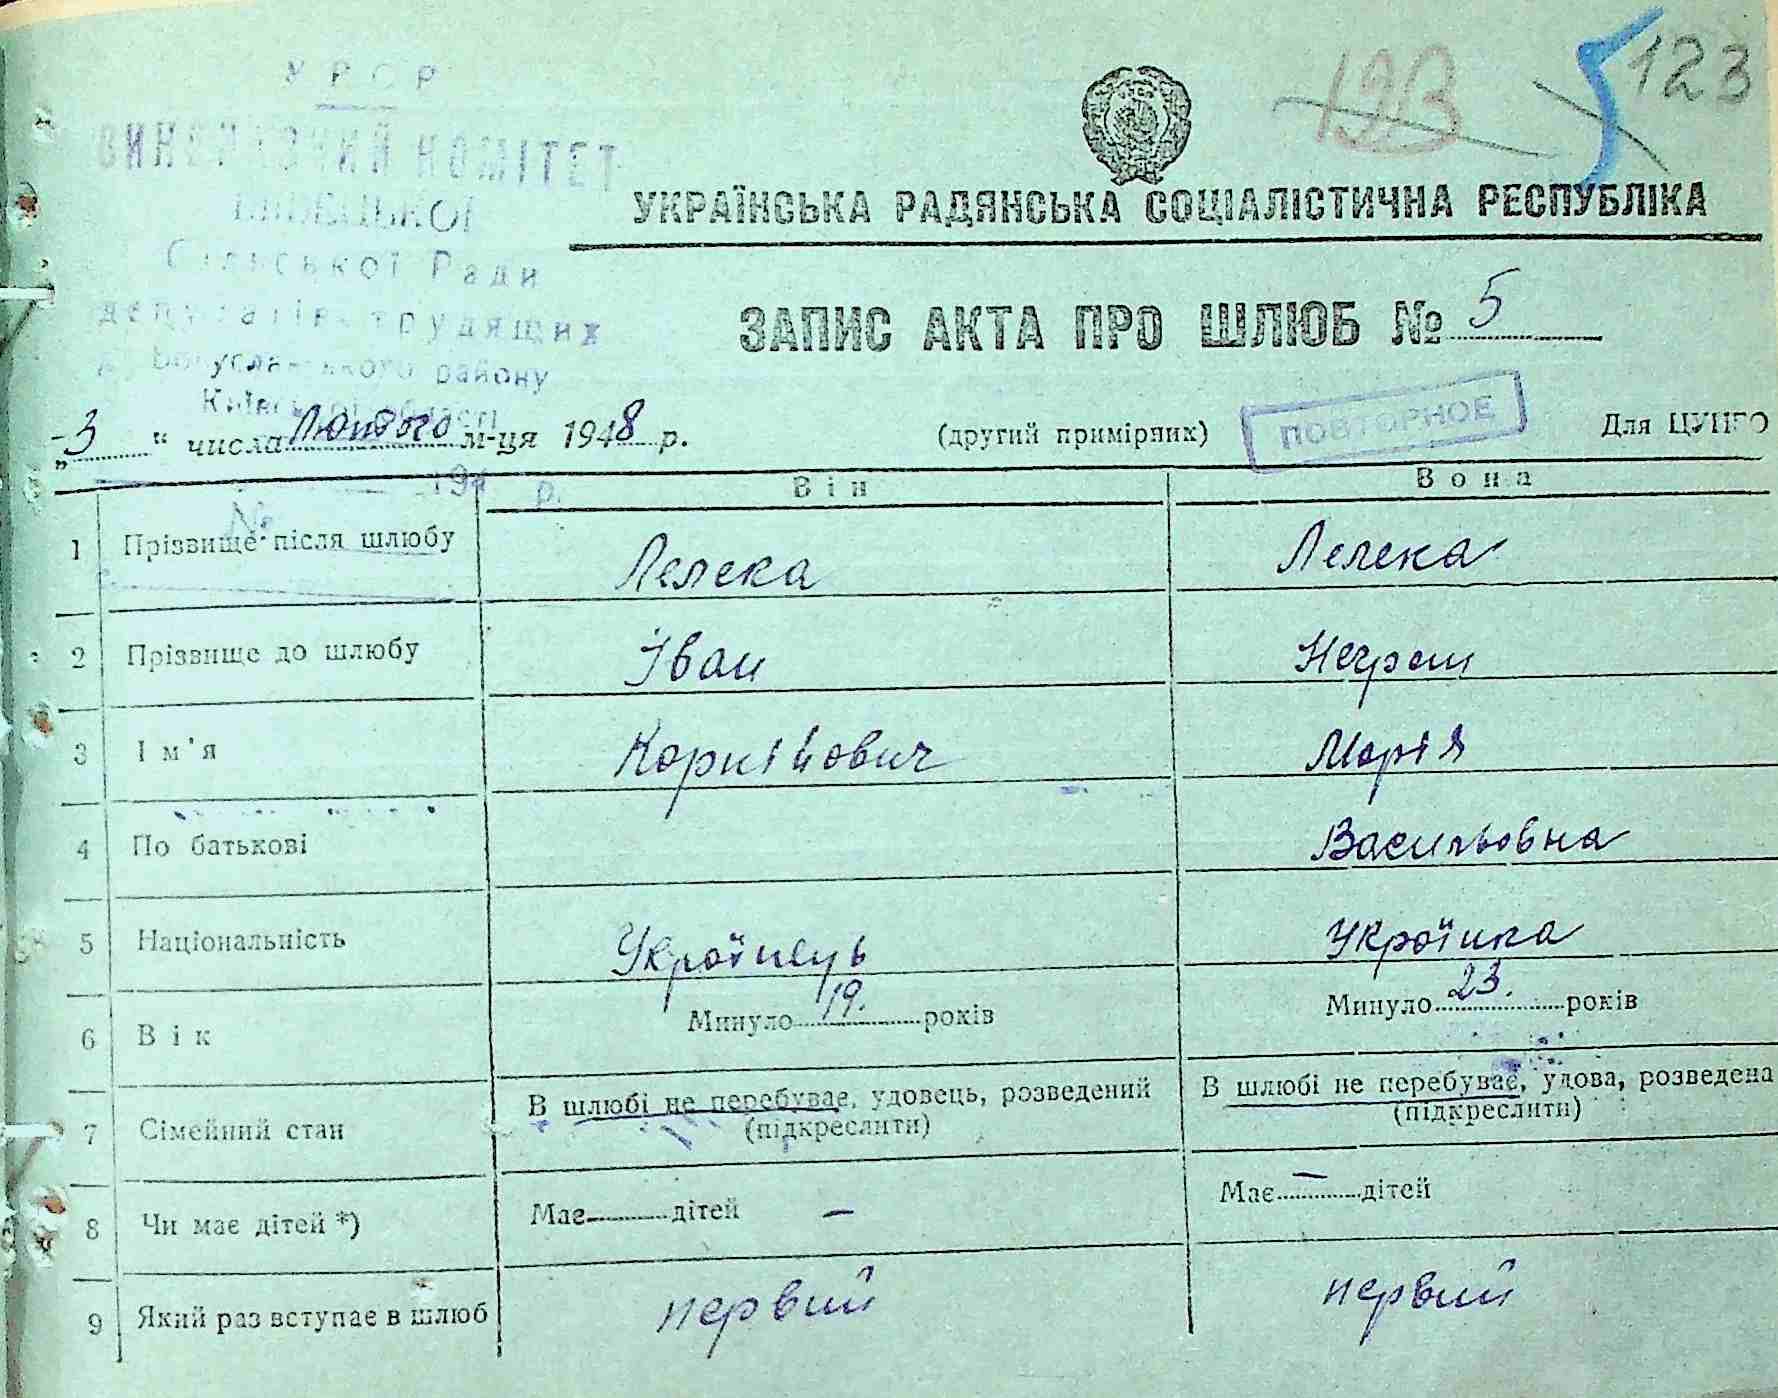 УРСР
ВИКОНАВЧИЙ КОМІТЕТ
Сільської Ради
депутатів трудящих
Богуславського району
Київської області
194 р.
№
193
5
123
УКРАЇНСЬКА РАДЯНСЬКА СОЦІАЛІСТИЧНА РЕСПУБЛІКА
ЗАПИС АКТА ПРО ШЛЮБ № 5
„3“ числа Лютого м-ця 1948 р.
(другий примірник)
ПОВТОРНОЕ
Для ЦУНГО
Він
Вона
1 Прізвище після шлюбу Лелека Лелека
2 Прізвище до шлюбу Іван
3 Ім'я Корнійович Марія
4 По батькові Васильовна
5 Національність Українець Українка
6 Вік Минуло 19. років Минуло 23. років
7 Сімейний стан В шлюбі не перебуває, удовець, розведений (підкреслити) В шлюбі не перебуває, удова, розведена (підкреслити)
8 Чи має дітей *) Має дітей — Має — дітей
9 Який раз вступає в шлюб первий первий